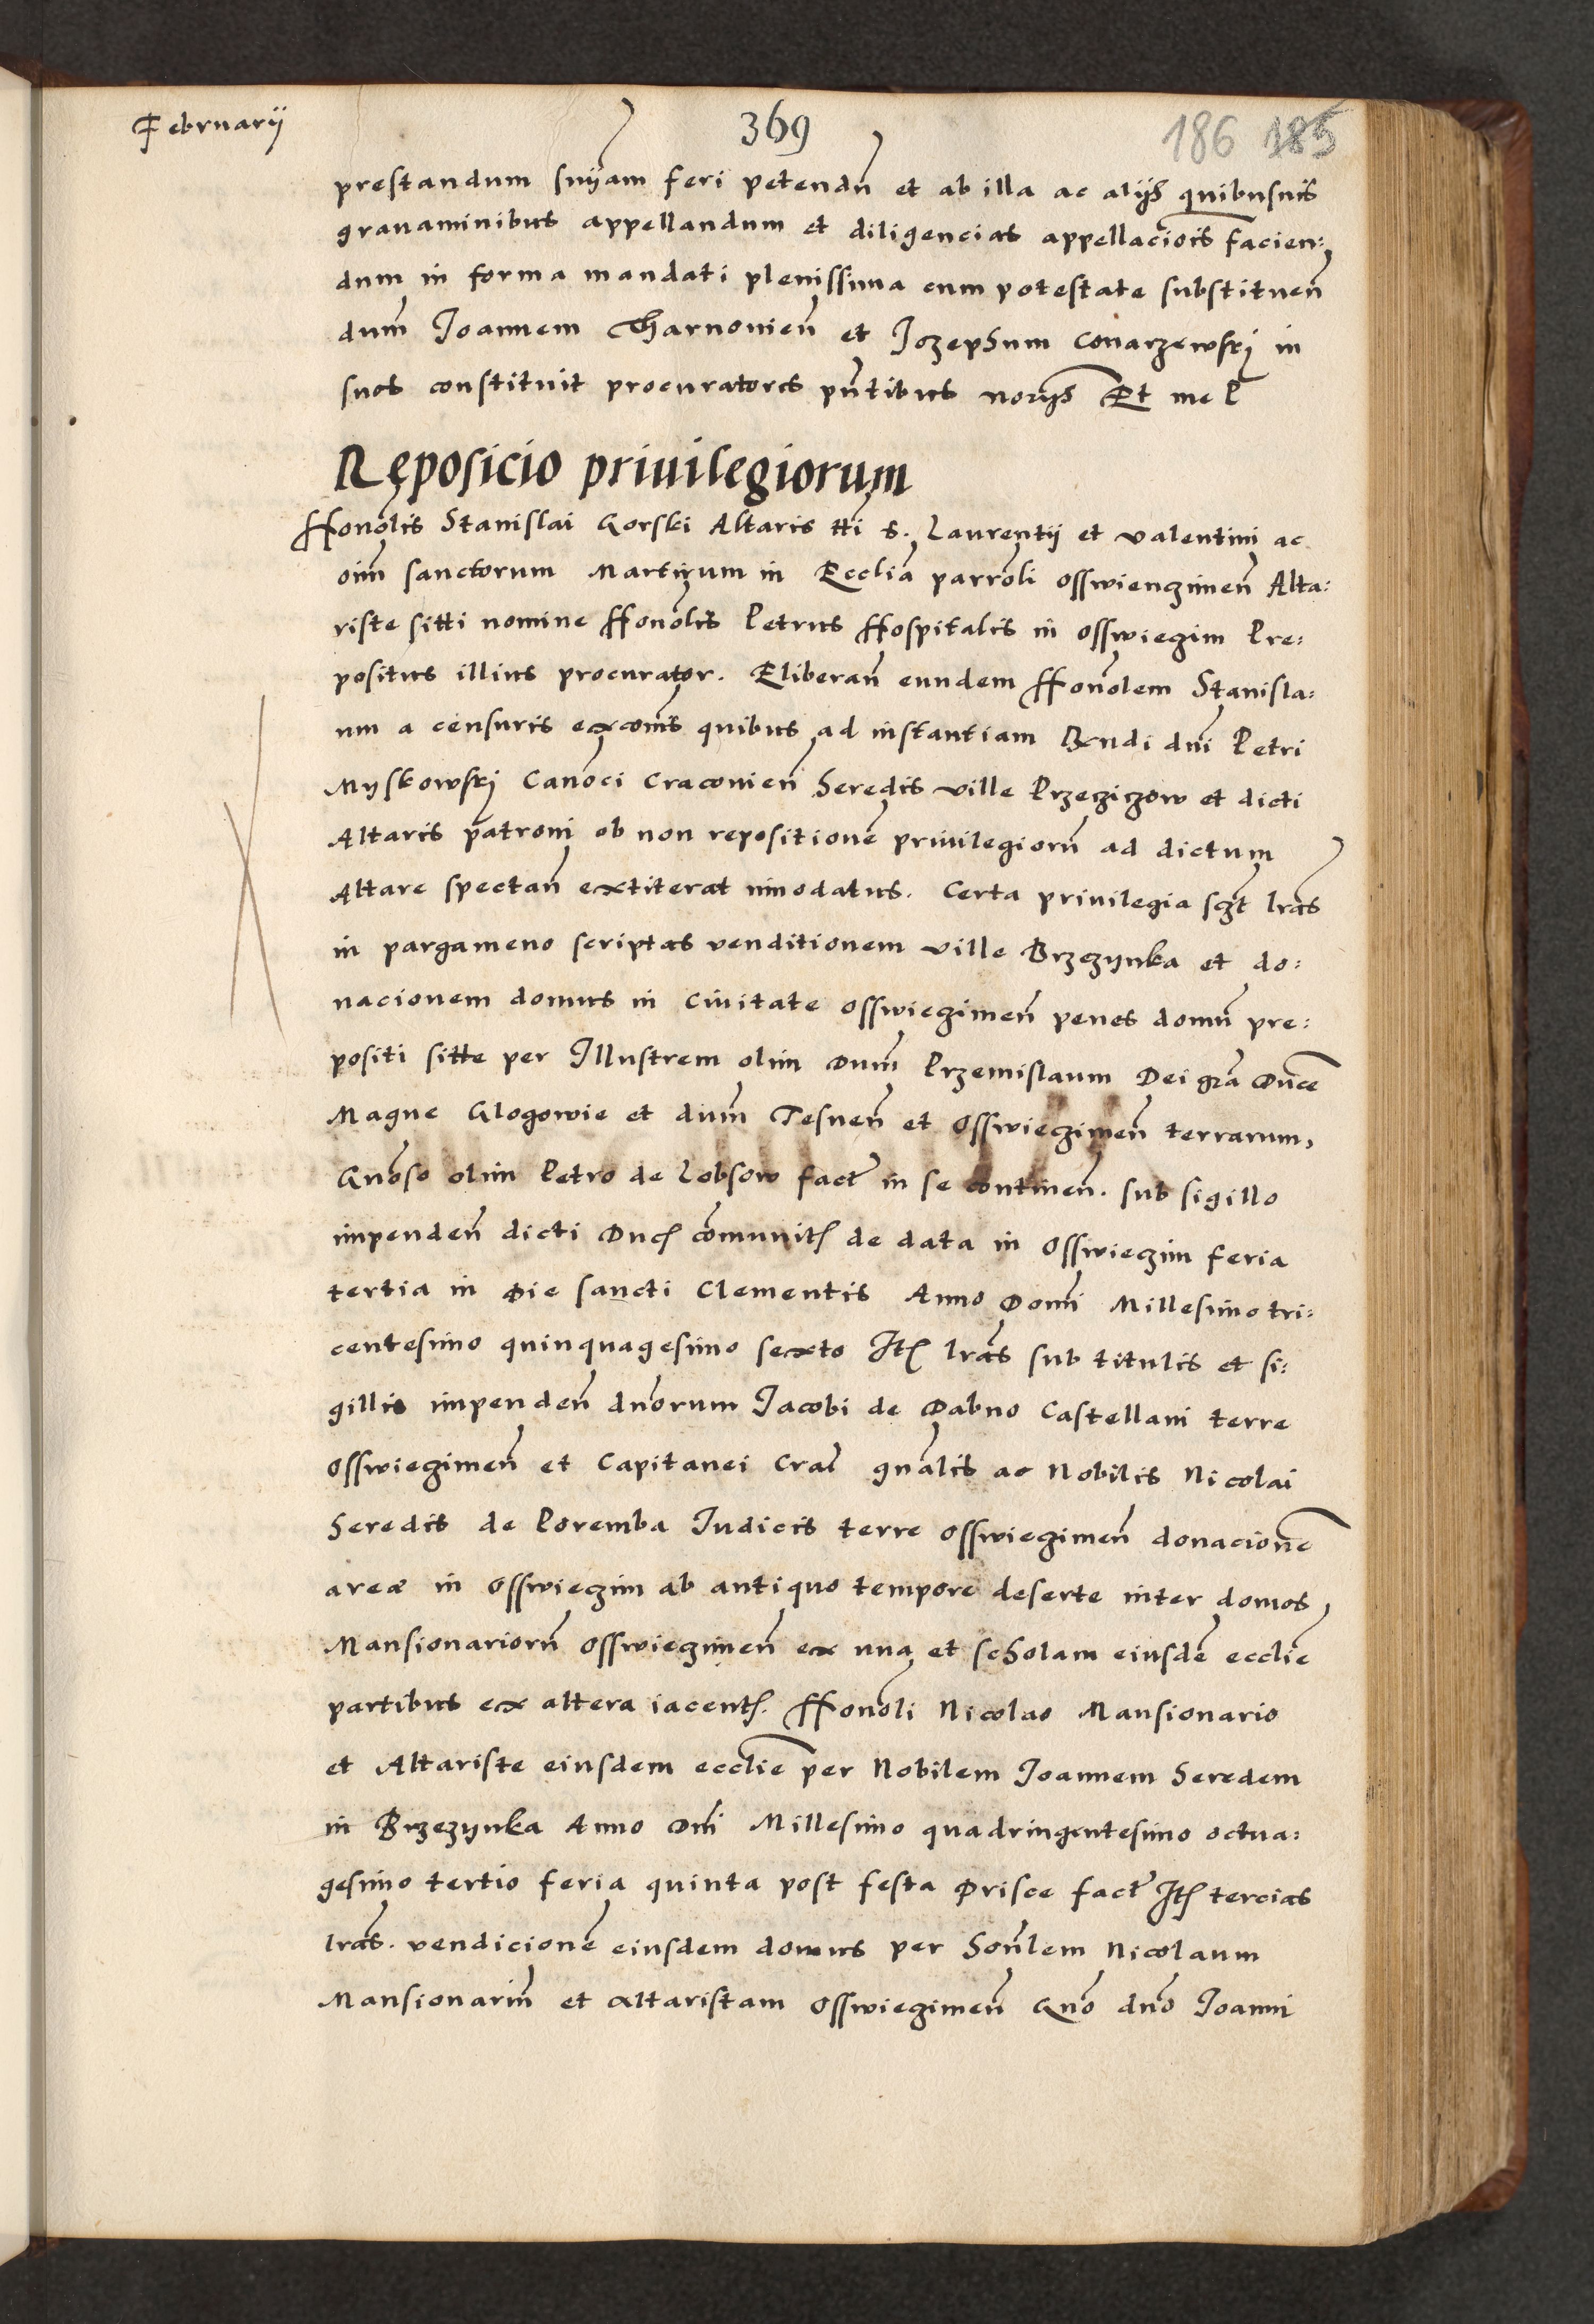 Februarij
369
186 185
prestandum snÿam feri petendũ et ab illa ac alijs quibusuis
grauaminibus appellandum et diligencias appellaciõis facien:
dum in forma mandati plenissima cum potestate substituen
dum̃ Joannem Tharnouień et Jozephum Conarzewskj in
suos constituit procuratores pñtibus norijs Et me P
Reposicio priuilegiorum
Honõlis Stanislai Gorski Altaris tti s. Laurentij et Valentini ac
oim̃ sanctorum Martirum in Ecclĩa parrõli Osswienczimeñ Alta:
riste sitti nomine Honõlis Petrus Hospitalis in Osswieczim Pre:
positus illius procurator. Eliberañ eundem Honõlem Stanisla:
um a censuris excom̃s quibus ad instantiam Rndi dni Petri
Myskowskj Canoci Cracouień heredis ville Przeczichow et dicti
Altaris patroni ob non repositionẽ priuilegiorũ ad dictum
Altare spectañ extiterat innodatus. Certa priuilegia sczt lrãs
in pargameno scriptas venditionem ville Brzezynka et do:
nacionem domus in Ciuitate Osswieczimeñ penes domũ pre:
positi sitte per Illustrem olim Dnum̃ Przemislaum Dei grã Ducẽ
Magne Glogowie et dnum̃ Tesneñ et Osswieczimeñ terrarum,
Gnõso olim Petro de Lobsow fact̃ in se contineñ. sub sigillo
impendeñ dicti Ducʃ cõmunitʃ de data in Osswieczim feria
tertia in Die sancti Clementis Anno Domĩ Millesimo tri:
centesimo quinquagesimo sexto Itʃ lrãs sub titulis et si:
gillis impendeñ dnõrum Jacobi de Dabno Castellani terre
Osswieczimeñ et Capitanei Craĩ gnãlis ac Nobilis Nicolai
heredis de Poremba Judicis terre Osswieczimeñ donacionẽ
areæ in Osswieczim ab antiquo tempore deserte inter domos
Mansionariorũ Osswieczimeñ ex una et scholam eiusdẽ ecclie
partibus ex altera iacentʃ. Honõli Nicolao Mansionario
et Altariste eiusdem ecclie per Nobilem Joannem heredem
in Brzezynka Anno Dnĩ Millesimo quadringentesimo octua:
gesimo tertio feria quinta post festa Prisce fact̃ Itʃ tercias
lrãs. vendicionẽ eiusdem domus per honõlem Nicolaum
Mansionariũ et altaristam Osswieczimeñ Gnõ dnõ Joanni